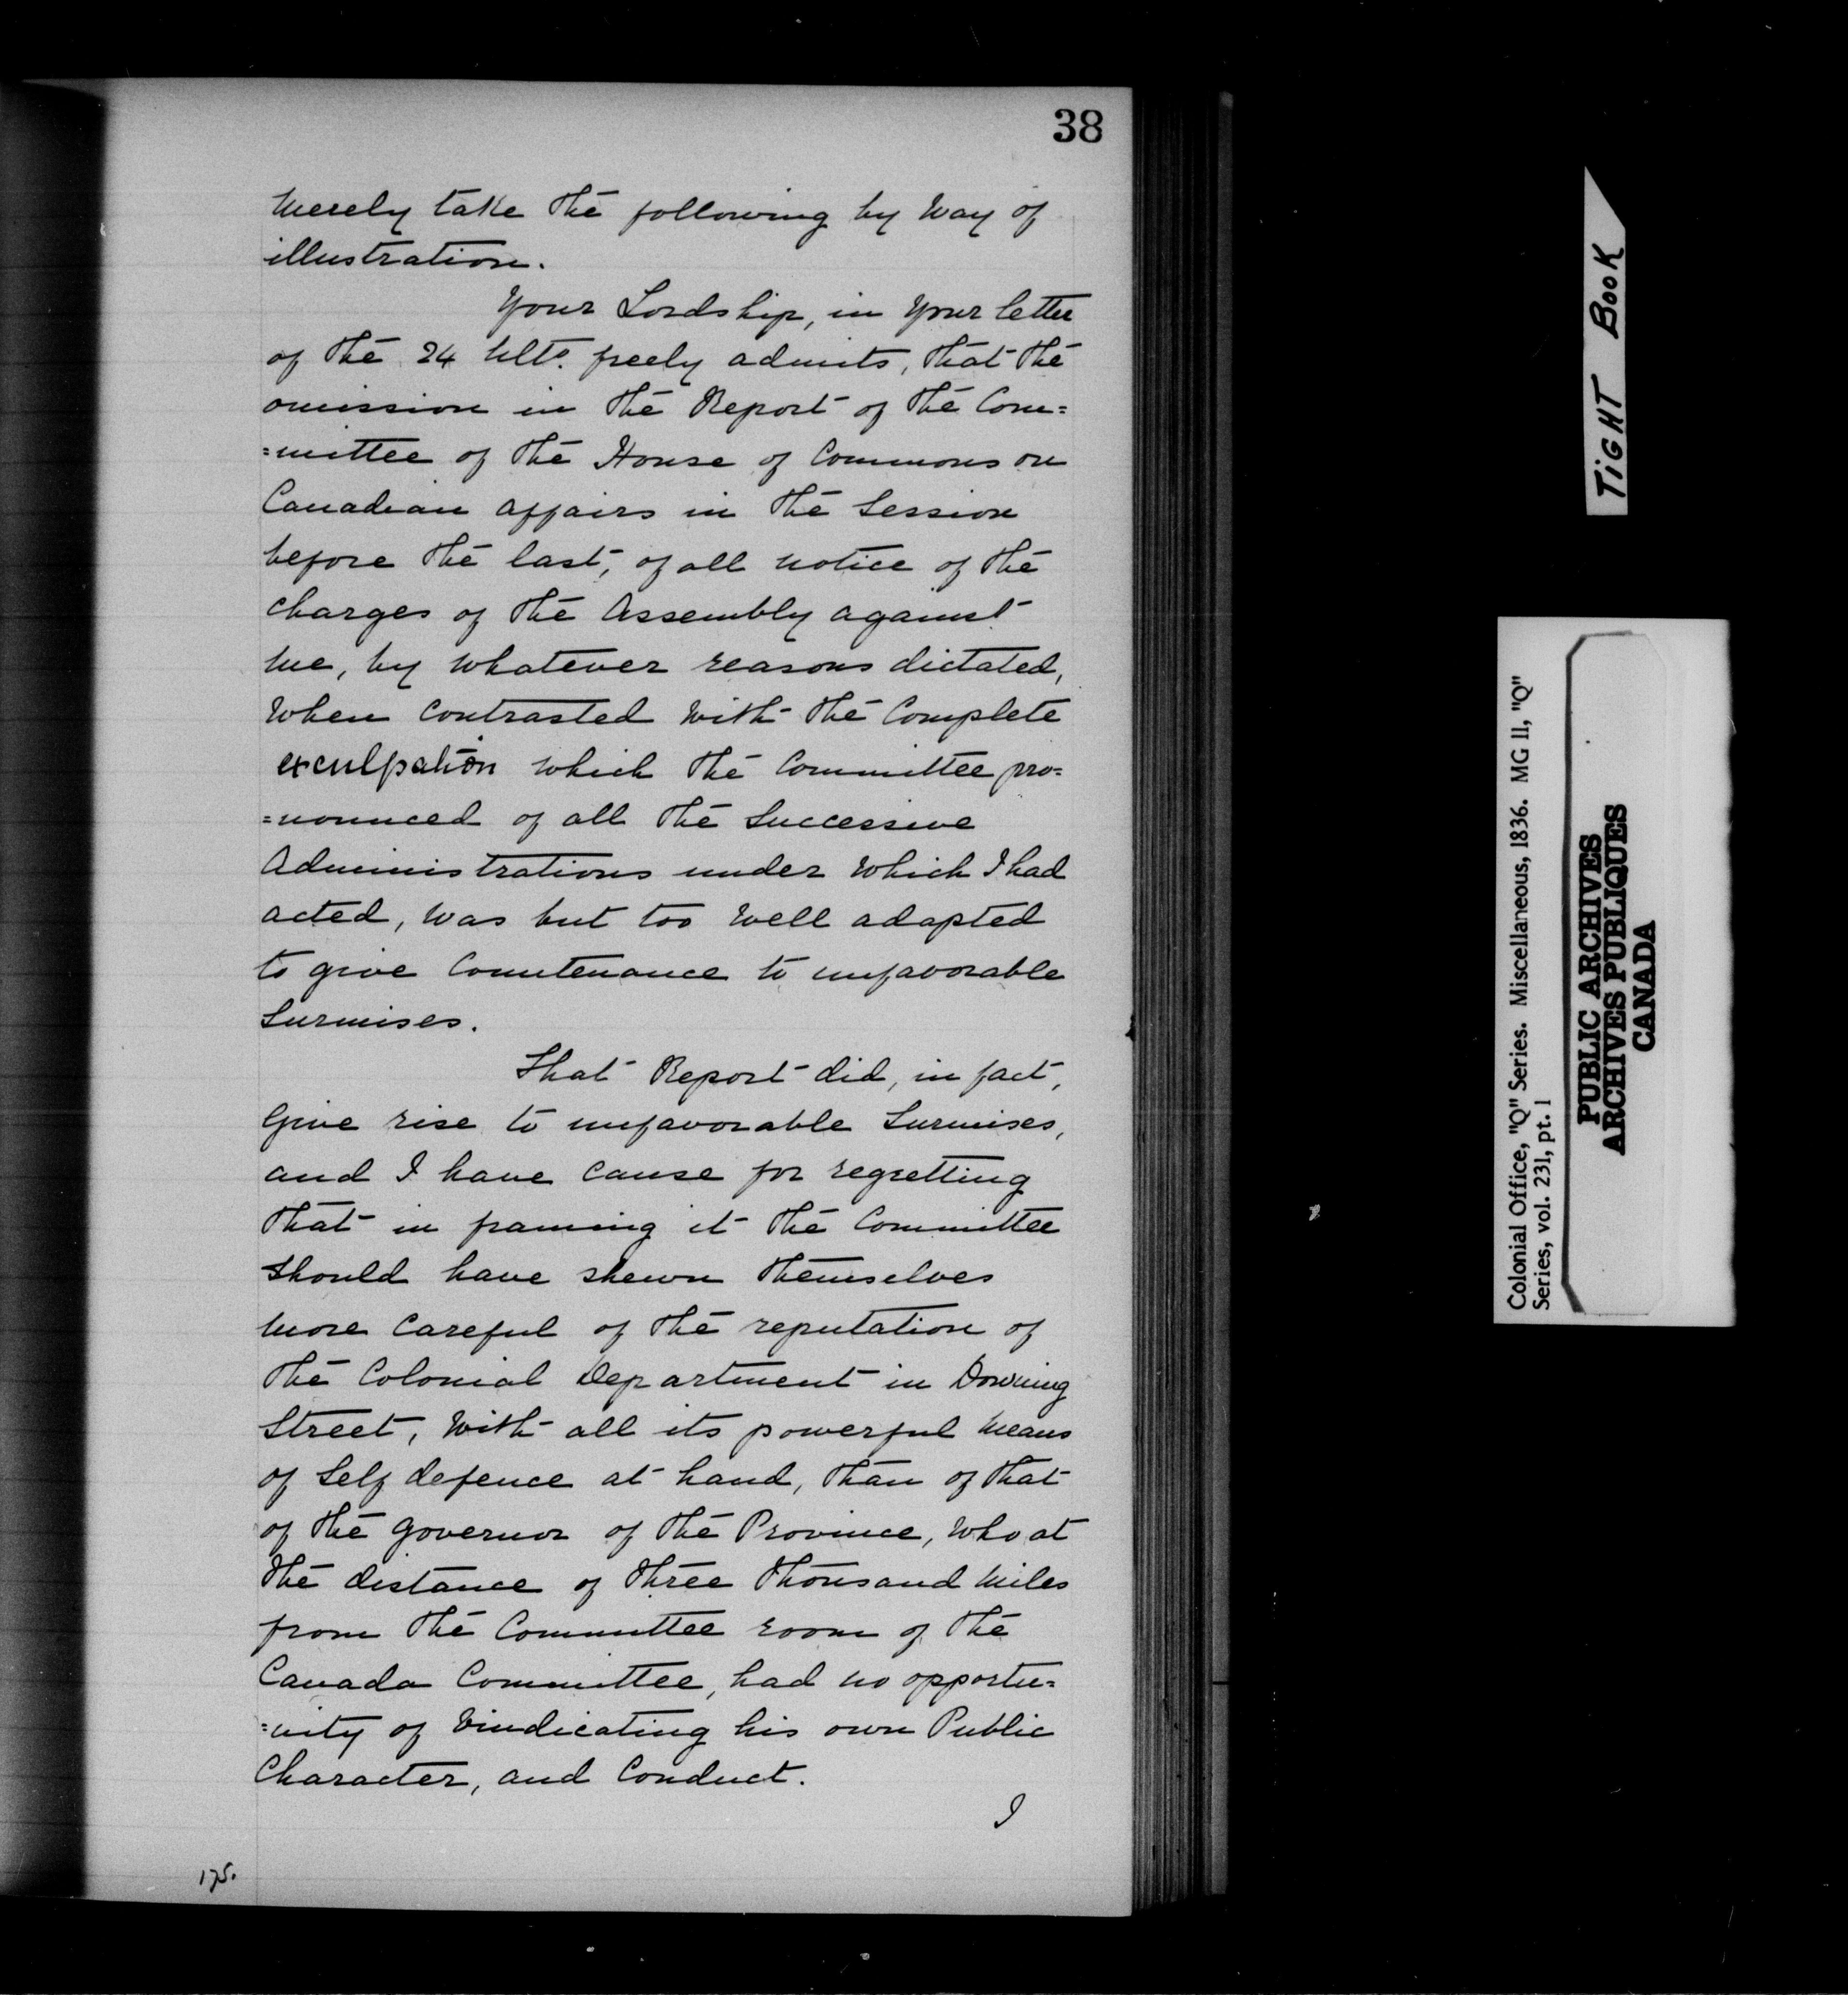 38
merely take the following by way of
illustration.
Your Lordship, in your letter
of the 24 Ulto. freely admits, that the
omission in the Report of the Com=
=mittee of the House of Commons on
Canadian affairs in the Session
before the last, of all notice of the
charges of the Assembly against
me, by whatever reasons dictated,
when contrasted with the complete
exculpation which the Committee pro=
=nounced of all the successive
Administrations under which I had
acted, was but too well adapted
to give countenance to unfavorable
surmises.
That Report did, in fact,
give rise to unfavorable surmises,
and I have cause for regretting
that in framing it the Committee
should have shewn themselves
more careful of the reputation of
the Colonial Department in Downing
Street, with all its powerful means
of self defence at hand, than of that
of the Governor of the Province, who at
the distance of three thousand miles
from the Committee room of the
Canada Committee, had no opportu=
=nity of vindicating his own Public
Character, and Conduct.
I
175.
TIGHT BOOK
Colonial Office, "Q" Series. Miscellaneous, 1836. MG 11, "Q"
Series, vol. 231, pt. 1
PUBLIC ARCHIVES
ARCHIVES PUBLIQUES
CANADA